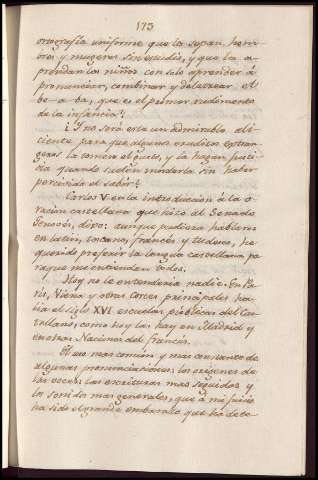 173
ortografía uniforme que la sepan hom-
bres y mugeres sin estudio, y que la a-
prendan los niños con solo aprender á
pronunciar, combinar y deletrear el
be-a-ba, que es el primer rudimento
de la infancia?
¿Y no será esta un admirable ali-
ciente para que algunos eruditos extran-
geros la tomen el gusto, y la hagan justi-
cia quando suelen morderla sin haber
percivido el sabor?
Carlos V en la introduccion á la o-
racion castellana que hizo al Senado
Genovés, dixo: aunque pudiera hablaros
en latin, toscano, frances y tudesco, he
querido preferir la lengua castellana pa-
raque me entiendan todos.
Hoy no le entenderia nadie. En Pa-
ris, Viena y otras cortes principales ha-
bia el siglo XVI escuelas públicas del Cas-
tellano, como hoy las hay en Madrid y
en otras Naciones del frances.
El uso mas comun y mas constante de
algunas pronunciaciones: los orígenes de
las voces: las escrituras mas seguidas y
los sonidos mas generales, que á mi juicio
ha sido el grande embarazo que ha dete-